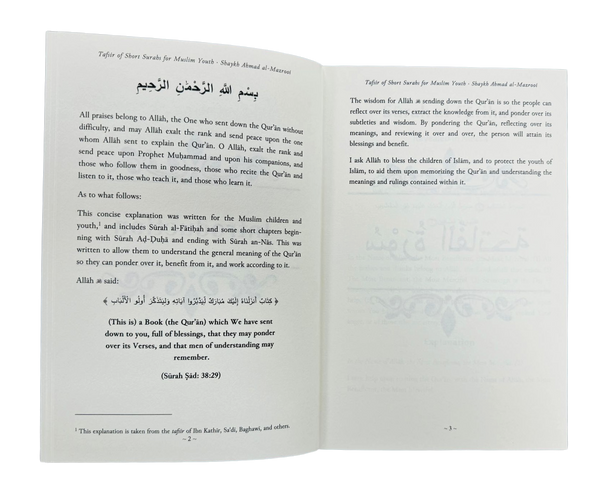 Tafsīr of Short Surahs for Muslim Youth · Shaykh Ahmad al-Mazrooi
بِسْمِ اللَّهِ الرَّحْمَٰنِ الرَّحِيمِ
All praises belong to Allāh, the One who sent down the Qur'ān without
difficulty, and may Allāh exalt the rank and send peace upon the one
whom Allāh sent to explain the Qur'ān. O Allāh, exalt the rank and
send peace upon Prophet Muḥammad and upon his companions, and
those who follow them in goodness, those who recite the Qur'ān and
listen to it, those who teach it, and those who learn it.
As to what follows:
This concise explanation was written for the Muslim children and
youth,¹ and includes Sūrah al-Fātiḥah and some short chapters begin-
ning with Sūrah Aḍ-Ḍuḥā and ending with Sūrah an-Nās. This was
written to allow them to understand the general meaning of the Qur'ān
so they can ponder over it, benefit from it, and work according to it.
Allāh ﷻ said:
﴿ كِتَابٌ أَنزَلْنَاهُ إِلَيْكَ مُبَارَكٌ لِّيَدَّبَّرُوا آيَاتِهِ وَلِيَتَذَكَّرَ أُولُو الْأَلْبَابِ ﴾
(This is) a Book (the Qur'ān) which We have sent
down to you, full of blessings, that they may ponder
over its Verses, and that men of understanding may
remember.
(Sūrah Ṣād: 38:29)
¹ This explanation is taken from the tafsīr of Ibn Kathīr, Sa'dī, Baghawī, and others.
~ 2 ~
Tafsīr of Short Surahs for Muslim Youth · Shaykh Ahmad al-Mazrooi
The wisdom for Allāh ﷻ sending down the Qur'ān is so the people can
reflect over its verses, extract the knowledge from it, and ponder over its
subtleties and wisdom. By pondering the Qur'ān, reflecting over its
meanings, and reviewing it over and over, the person will attain its
blessings and benefit.
I ask Allāh to bless the children of Islām, and to protect the youth of
Islām, to aid them upon memorizing the Qur'ān and understanding the
meanings and rulings contained within it.
~ 3 ~